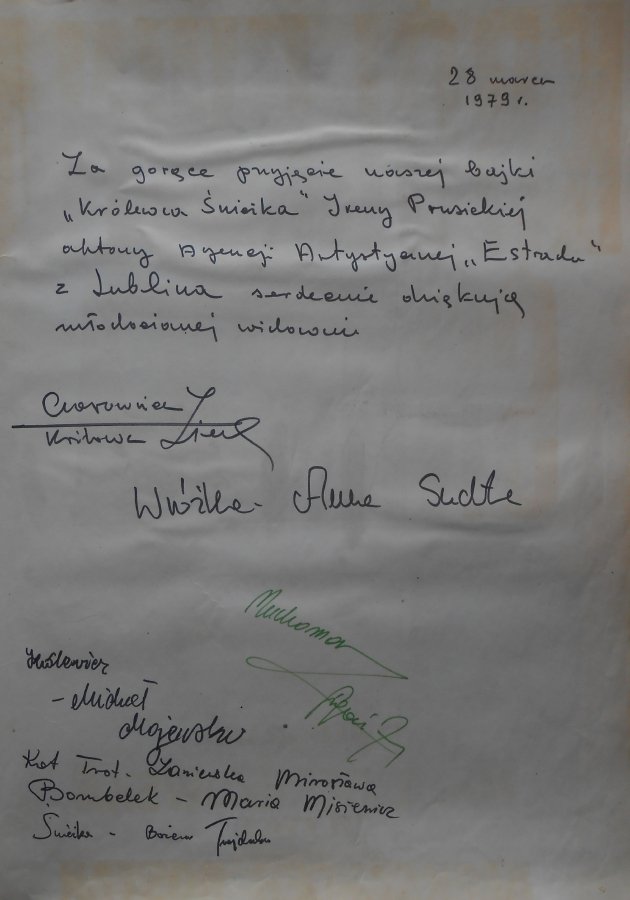 28 marca
1979 r.
Za gorące przyjęcie naszej bajki
„Królewna Śnieżka" Ireny Prusickiej
aktorzy Agencji Artystycznej „Estrada"
z Lublina serdecznie dziękują
młodocianej widowni
Czarownica
Królowa
Wróżka - Anna
Muchomor
Królewicz
- Michał
Majewski
Kot Trot. Zaniewska Mirosława
Bombelek - Maria Misiewicz
Śnieżka -